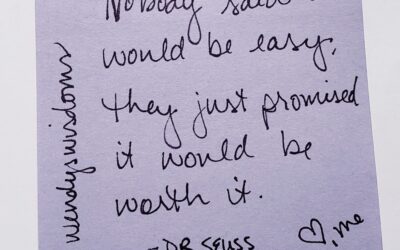 Nobody said
would be easy,
they just promised
it would be
worth it.
-DR SEUSS
♡, me
wendyswisdoms